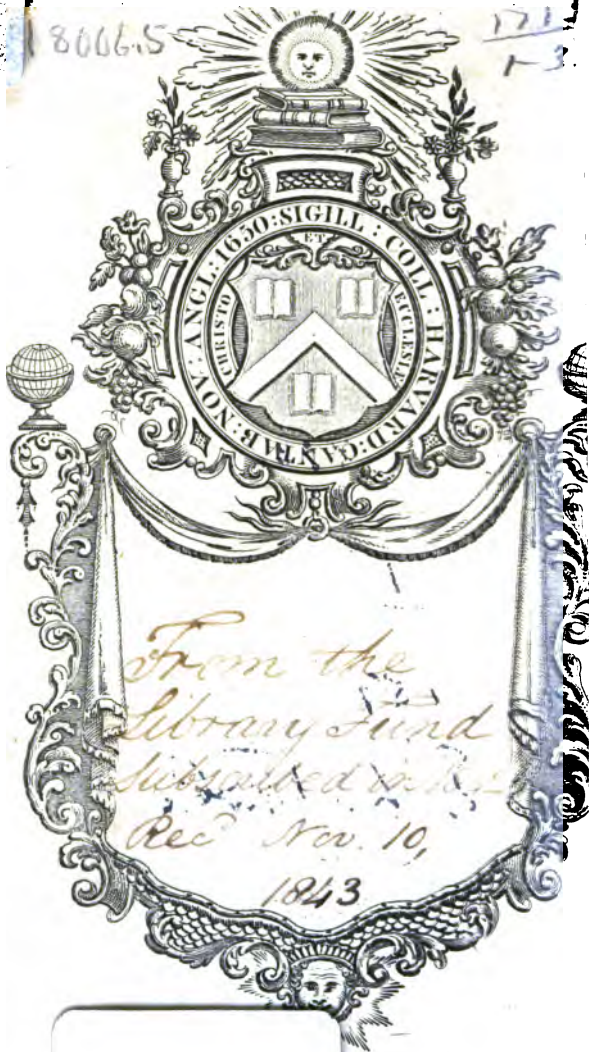 18006.5
171
SIGILL : COLL : HARVARD : CANTAB : NOV : ANGL : 1650 :
CHRISTO ET ECCLESIÆ
From the
Library Fund
Subscribed in
Rec'd Nov. 10,
1843